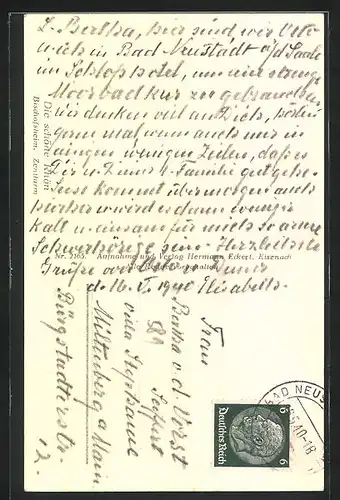 L. Bertha, hier sind wir Otto
u. ich in Bad Neustadt a/d Saale
im Schloßhotel, um eine strenge
Moorbadkur zu gebrauchen
wir denken viel an Dich, hörten
gerne mal wenn auch nur in
einigen wenigen Zeilen, daß es
Dir u. 4 Familie gut geht.
kommt übermorgen auch
hierher wird es dann weniger
kalt u. einsam für mich so arme
Schwerhörige sein. Herzlichste
Grüße
d. 16. V. 1940 Elisabeth.
Die schöne Rhön
Bischofsheim, Zentturm
Nr. 2165. Aufnahme und Verlag Hermann Eckert, Eisenach
Frau
Bertha v. d. Vorst
Villa Stephanie
Miltenberg a Main
Bürgstadterstr.
12.
6 6
Deutsches Reich
BAD NEUS
5.40-18